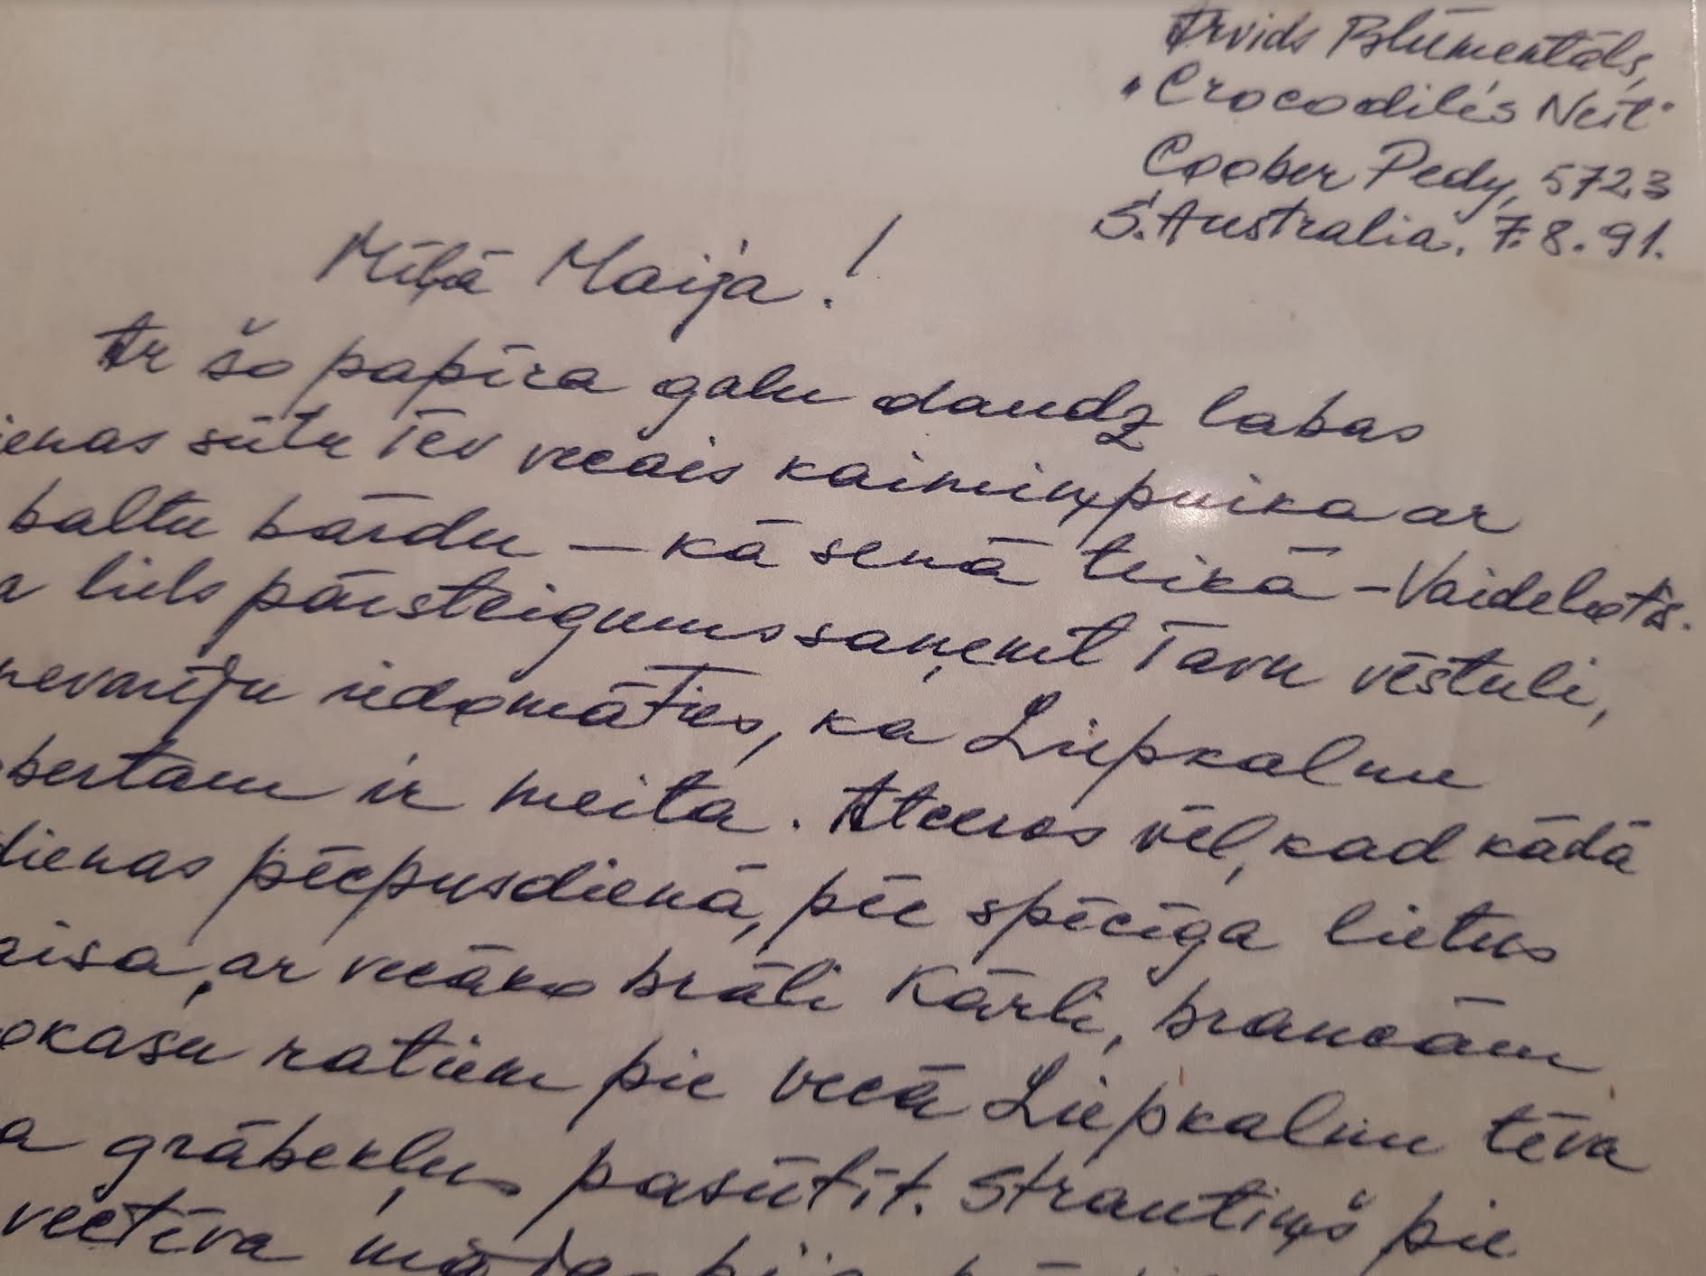 Arvids Blūmentāls,
"Crocodile's Nest"
Coober Pedy, 5723
S. Australia. 7.8.91.
Mīļā Maija!
Ar šo papīra galu daudz labas
ienas sūtu Tev vecais kaimiņpuika ar
baltu bārdu – kā senā teikā – Vaidelotis.
a liels pārsteigums saņemt Tavu vēstuli,
nevarēju iedomāties, ka Liepkalnu
bertam ir meita. Atceros vēl, kad kādā
dienas pēcpusdienā, pēc spēcīga lietus
aisa, ar vecāko brāli Kārli, braucām
okašu ratiem pie vecā Liepkalnu tēva
a grābekļus pasūtīt. Strautiņš pie
vectēva